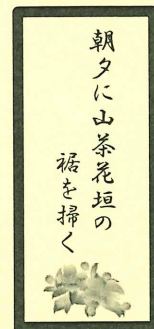 朝夕に山茶花垣の
裾を掃く